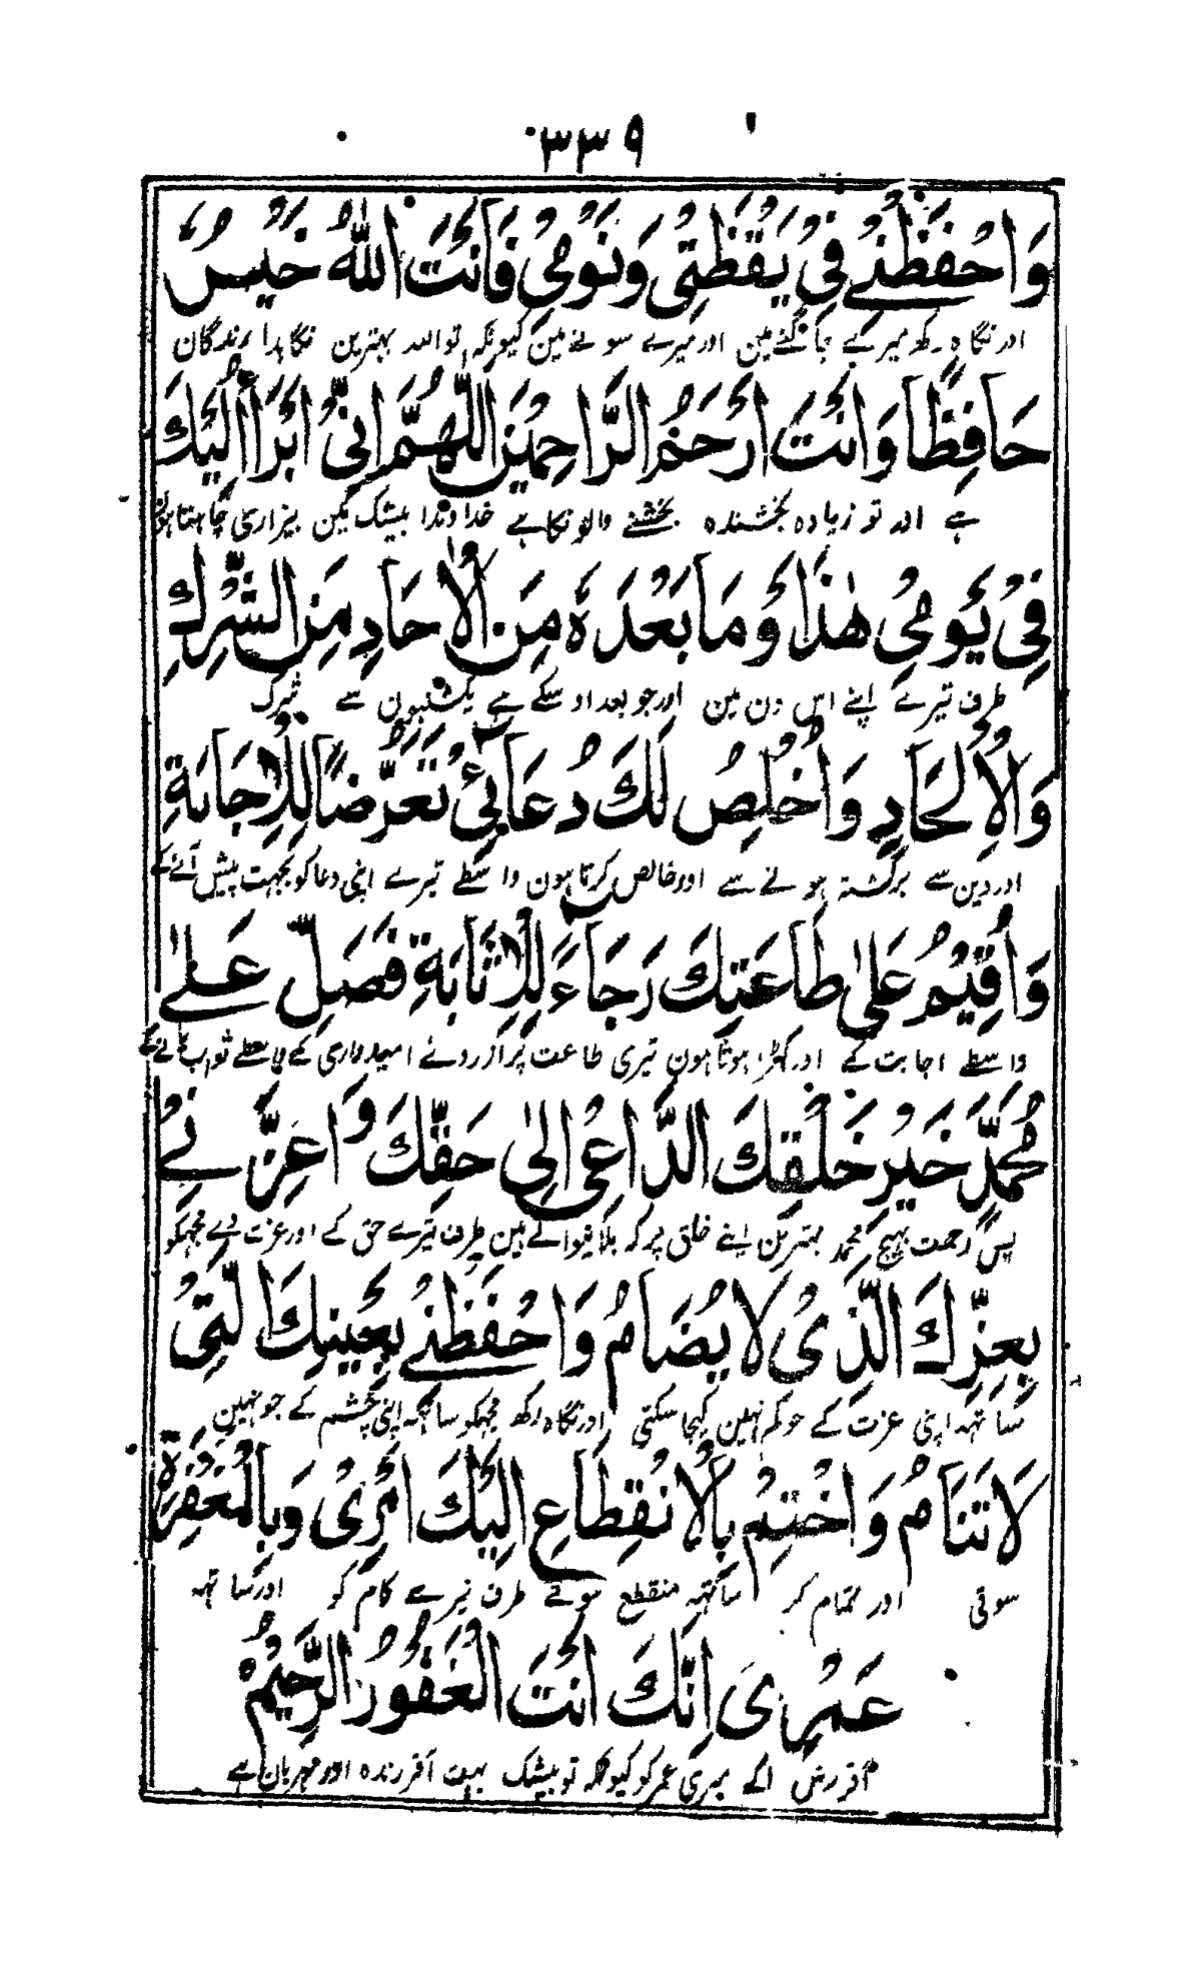 ٣٣٩
وَاحْفَظْنِي فِي يَقْظَتِي وَنَوْمِي فَأَنْتَ اللهُ خَيْرٌ
اور نگاہ رکھ میرے جاگنے مین اور میرے سونے مین کیونکہ تو اللہ بہترین نگاہدارندگان
حَافِظًا وَأَنْتَ أَرْحَمُ الرَّاحِمِينَ اللَّهُمَّ إِنِّي أَبْرَأُ إِلَيْكَ
ہے اور تو زیادہ بخشندہ بخشنے والونکا ہے خداوندا بیشک مین بیزاری چاہتا ہون
فِي يَوْمِي هٰذَا وَمَا بَعْدَهُ مِنَ الْآحَادِ مِنَ الشِّرْكِ
طرف تیرے اپنے اس دن مین اور جو بعد اوسکے ہے یکشنبون سے شرک
وَالْإِلْحَادِ وَأُخْلِصُ لَكَ دُعَائِي تَعَرُّضًا لِلْإِجَابَةِ
اور دین سے برگشتہ ہونے سے اور خالص کرتا ہون واسطے تیرے اپنی دعا کو بجہت پیش آنے کے
وَأُقِيمُ عَلىٰ طَاعَتِكَ رَجَاءً لِلْإِثَابَةِ فَصَلِّ عَلىٰ
واسطے اجابت کے اور کھڑا ہوتا ہون تیری طاعت پر از روئے امیدواری کے واسطے ثواب پانے کے
مُحَمَّدٍ خَيْرِ خَلْقِكَ الدَّاعِي إِلىٰ حَقِّكَ وَأَعِزَّنِي
پس رحمت بھیج محمد بہترین اپنے خلق پر کہ بلانیوالے ہین طرف تیرے حق کے اور عزت دے مجہکو
بِعِزِّكَ الَّذِي لَا يُضَامُ وَاحْفَظْنِي بِعَيْنِكَ الَّتِي
ساتہہ اپنی عزت کے جو کم نہین کیجا سکتی اور نگاہ رکھ مجہکو ساتہہ اپنی چشم کے جو نہین
لَا تَنَامُ وَاخْتِمْ بِالْاِنْقِطَاعِ إِلَيْكَ أَمْرِي وَبِالْمَغْفِرَةِ
سوتی اور تمام کر ساتھہ منقطع ہونے طرف تیرے کام کو اور ساتہہ
عُمْرِي إِنَّكَ أَنْتَ الْغَفُورُ الرَّحِيمُ
آمرزش کے میری عمر کو کیونکہ تو بیشک بہت آمرزندہ اور مہربان ہے